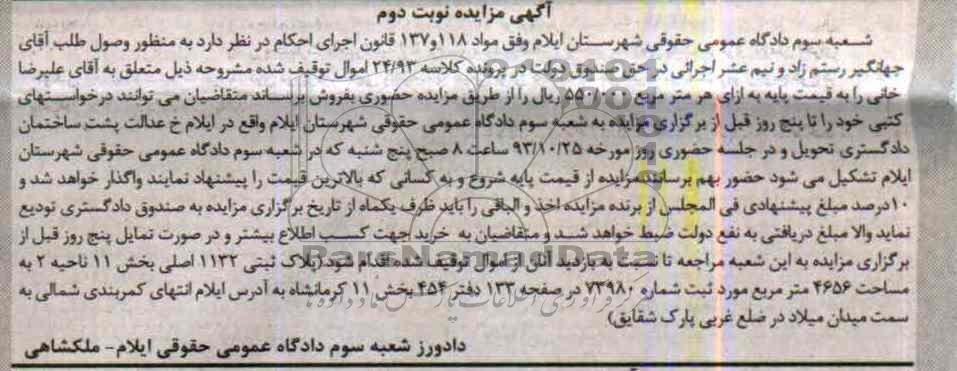 آگهی مزایده نوبت دوم
شعبه سوم دادگاه عمومی حقوقی شهرستان ایلام وفق مواد ۱۱۸و۱۳۷ قانون اجرای احکام در نظر دارد به منظور وصول طلب آقای
جهانگیر رستم زاد و نیم عشر اجرائی در حق صندوق دولت در پرونده کلاسه ۲۴/۹۳ اموال توقیف شده مشروحه ذیل متعلق به آقای علیرضا
خانی را به قیمت پایه به ازای هر متر مربع ریال را از طریق مزایده حضوری بفروش برساند متقاضیان می توانند درخواستهای
کتبی خود را تا پنج روز قبل از برگزاری مزایده به شعبه سوم دادگاه عمومی حقوقی شهرستان ایلام واقع در ایلام خ عدالت پشت ساختمان
دادگستری تحویل و در جلسه حضوری روز مورخه ۹۳/۱۰/۲۵ ساعت ۸ صبح پنج شنبه که در شعبه سوم دادگاه عمومی حقوقی شهرستان
ایلام تشکیل می شود حضور بهم برسانند مزایده از قیمت پایه شروع و به کسانی که بالاترین قیمت را پیشنهاد نمایند واگذار خواهد شد و
۱۰درصد مبلغ پیشنهادی فی المجلس از برنده مزایده اخذ و الباقی را باید ظرف یکماه از تاریخ برگزاری مزایده به صندوق دادگستری تودیع
نماید والا مبلغ دریافتی به نفع دولت ضبط خواهد شد و متقاضیان به خرید جهت کسب اطلاع بیشتر و در صورت تمایل پنج روز قبل از
برگزاری مزایده به این شعبه مراجعه تا نسبت به بازدید آنان از اموال توقیف شده اقدام شود.(پلاک ثبتی ۱۱۳۲ اصلی بخش ۱۱ ناحیه ۲ به
مساحت ۴۶۵۶ متر مربع مورد ثبت شماره ۷۳۹۸۰ در صفحه ۱۳۳ دفتر ۴۵۴ بخش ۱۱ کرمانشاه به آدرس ایلام انتهای کمربندی شمالی به
سمت میدان میلاد در ضلع غربی پارک شقایق)
دادورز شعبه سوم دادگاه عمومی حقوقی ایلام- ملکشاهی
ParsNamadData